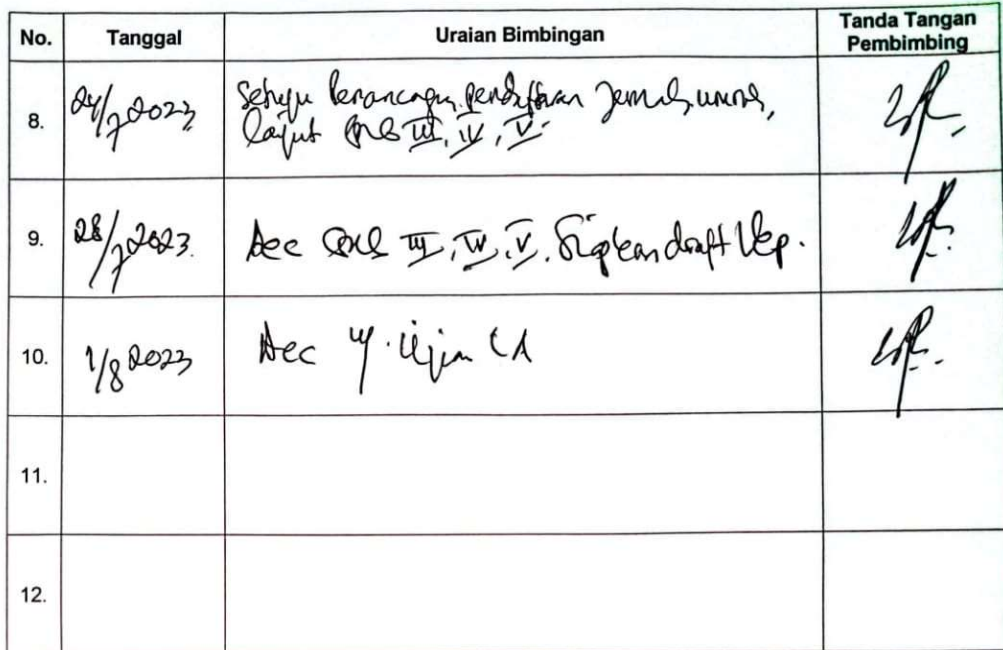 No. Tanggal Uraian Bimbingan Tanda Tangan Pembimbing
8. 24/7 2023 Setuju perancangan pendaftaran Jemaah umroh,
lanjut BAB III, IV, V.
9. 28/7 2023. Acc BAB III, IV, V. Siapkan draft lkp.
10. 1/8 2023 Acc Ujian
11.
12.